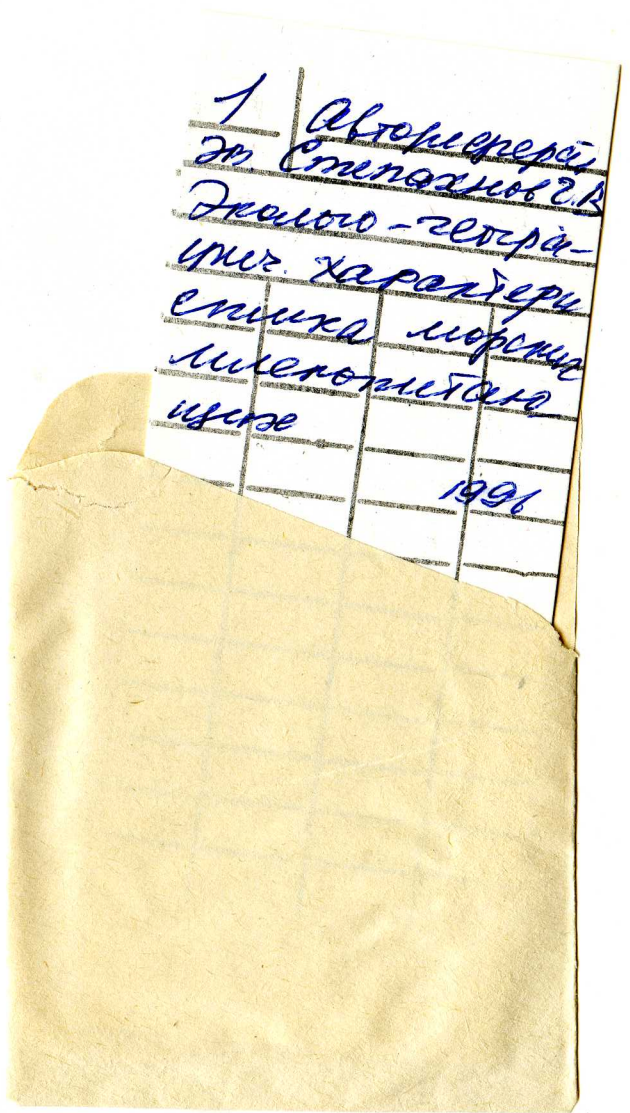 1 Автореферат
Эз. Степахнов Г.В
Эколого-геогра-
фич. характери
стика морских
млекопитаю
щих
1996